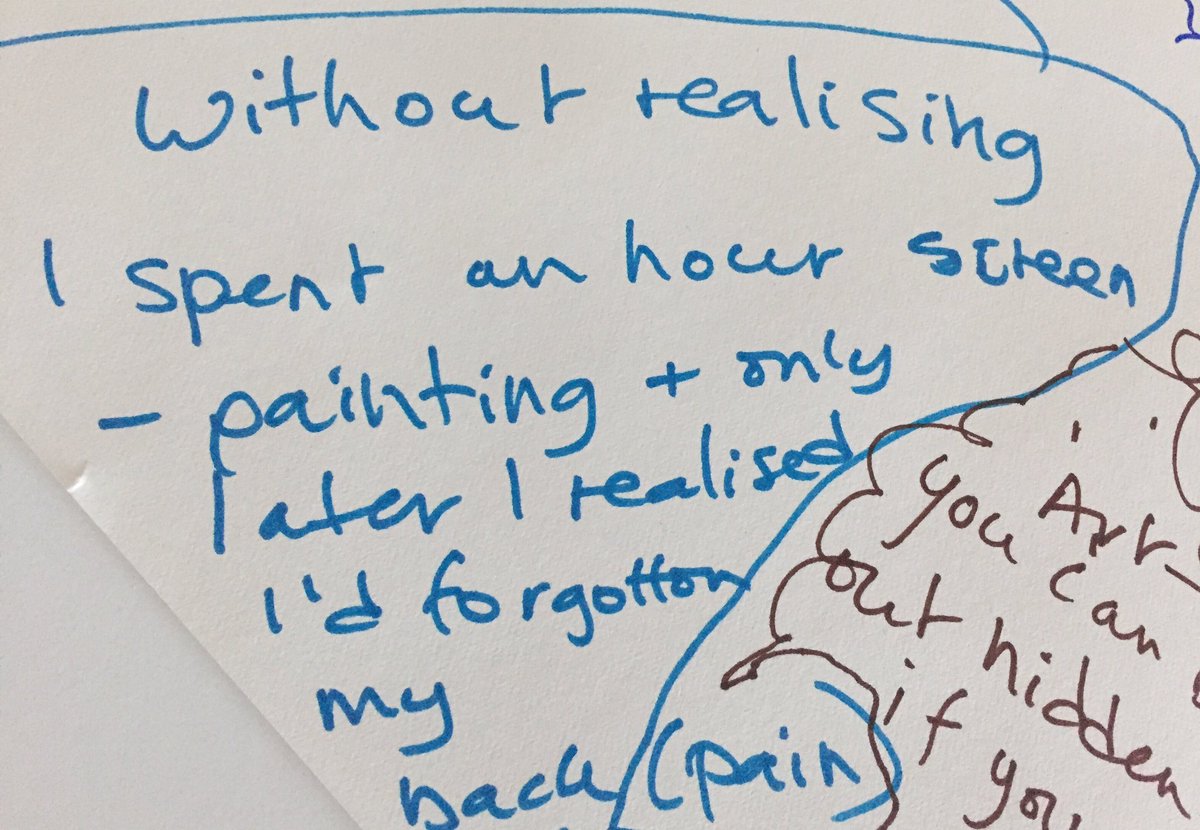 without realising
I spent an hour screen
- painting + only
later I realised
I'd forgotton
my
back (pain)
Art
you can
out hidden
if you